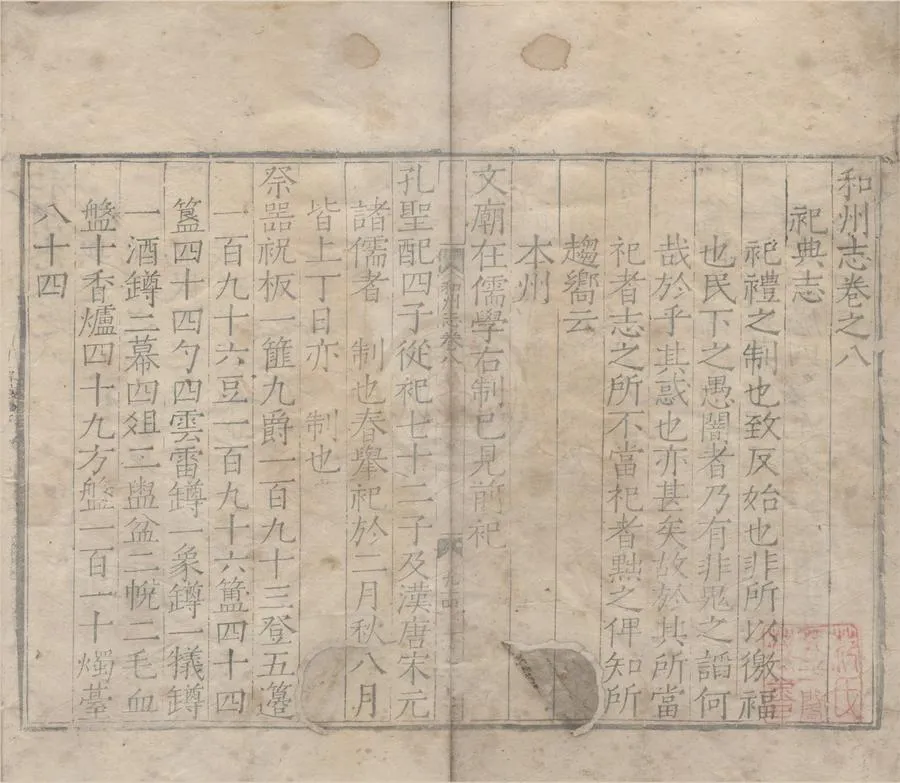 和州志卷之八
祀典志
祀禮之制也致反始也非所以徼福
也民下之愚闇者乃有非鬼之謟何
哉於乎其惑也亦甚矣故於其所當
祀者志之所不當祀者黜之俾知所
趨嚮云
本州
文廟在儒學右制已見前祀
孔聖配四子從祀七十二子及漢唐宋元
諸儒者 制也春舉祀於二月秋八月
皆上丁日亦 制也
祭器祝板一篚九爵一百九十三登五籩
一百九十六豆一百九十六簠四十四
簋四十四勺四雲雷罇一象罇一犧罇
一酒罇二幕四俎二盥盆二帨二毛血
盤十香爐四十九方盤一百一十燭䑓
八十四
和州志卷八